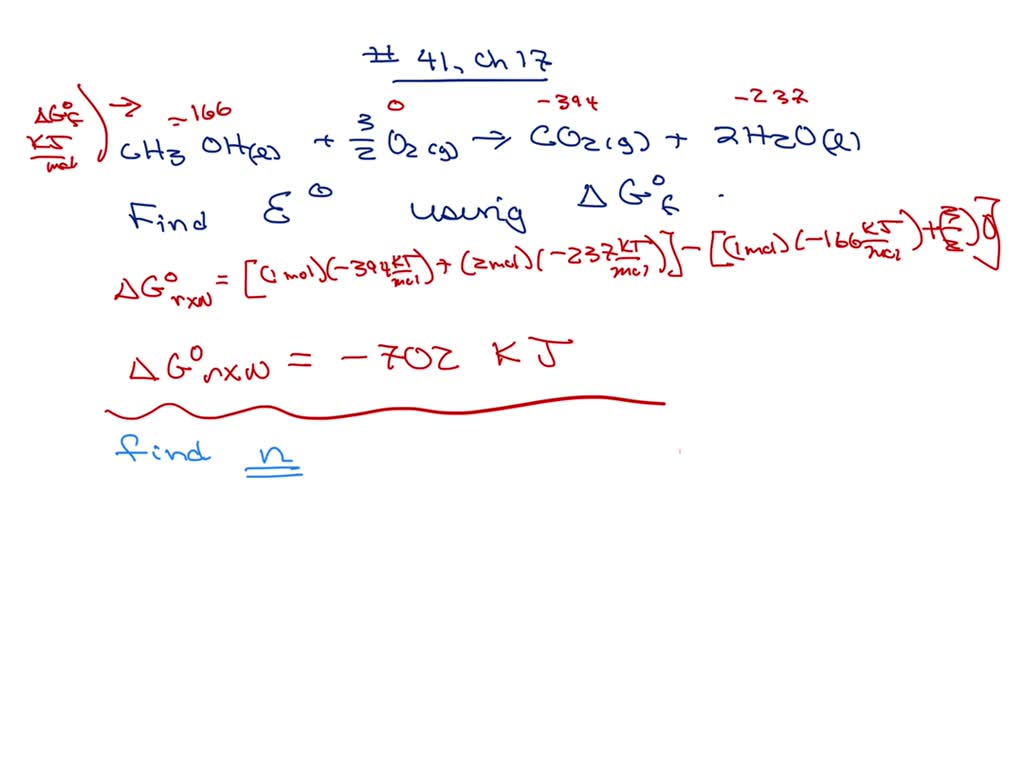 # 41, Ch 17
ΔG°f KJ/mol → -166 0 -394 -237
CH3OH(l) + 3/2 O2(g) → CO2(g) + 2H2O(l)
Find ℰ° using ΔG°f .
ΔG°rxn = [(1mol)(-394 KJ/mol) + (2mol)(-237 KJ/mol)] - [(1mol)(-166 KJ/mol) + (3/2)0]
ΔG°rxn = -702 KJ
find n